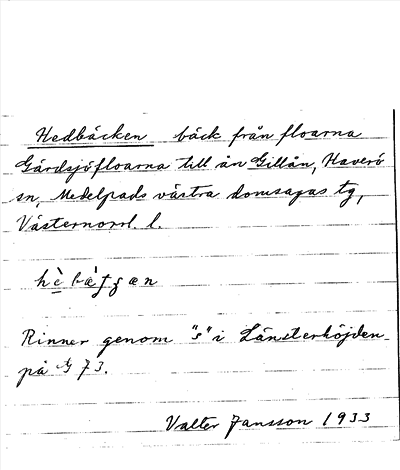 Hedbäcken bäck från floarna
Gårdsjöfloarna till ån Gillån, Haverö
sn, Medelpads västra domsagas tg,
Västernorrl. l.
Rinner genom "s" i Länsterhöjden
på G 73.
Valter Jansson 1933